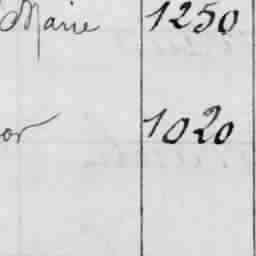 Marie 1250
or 1020